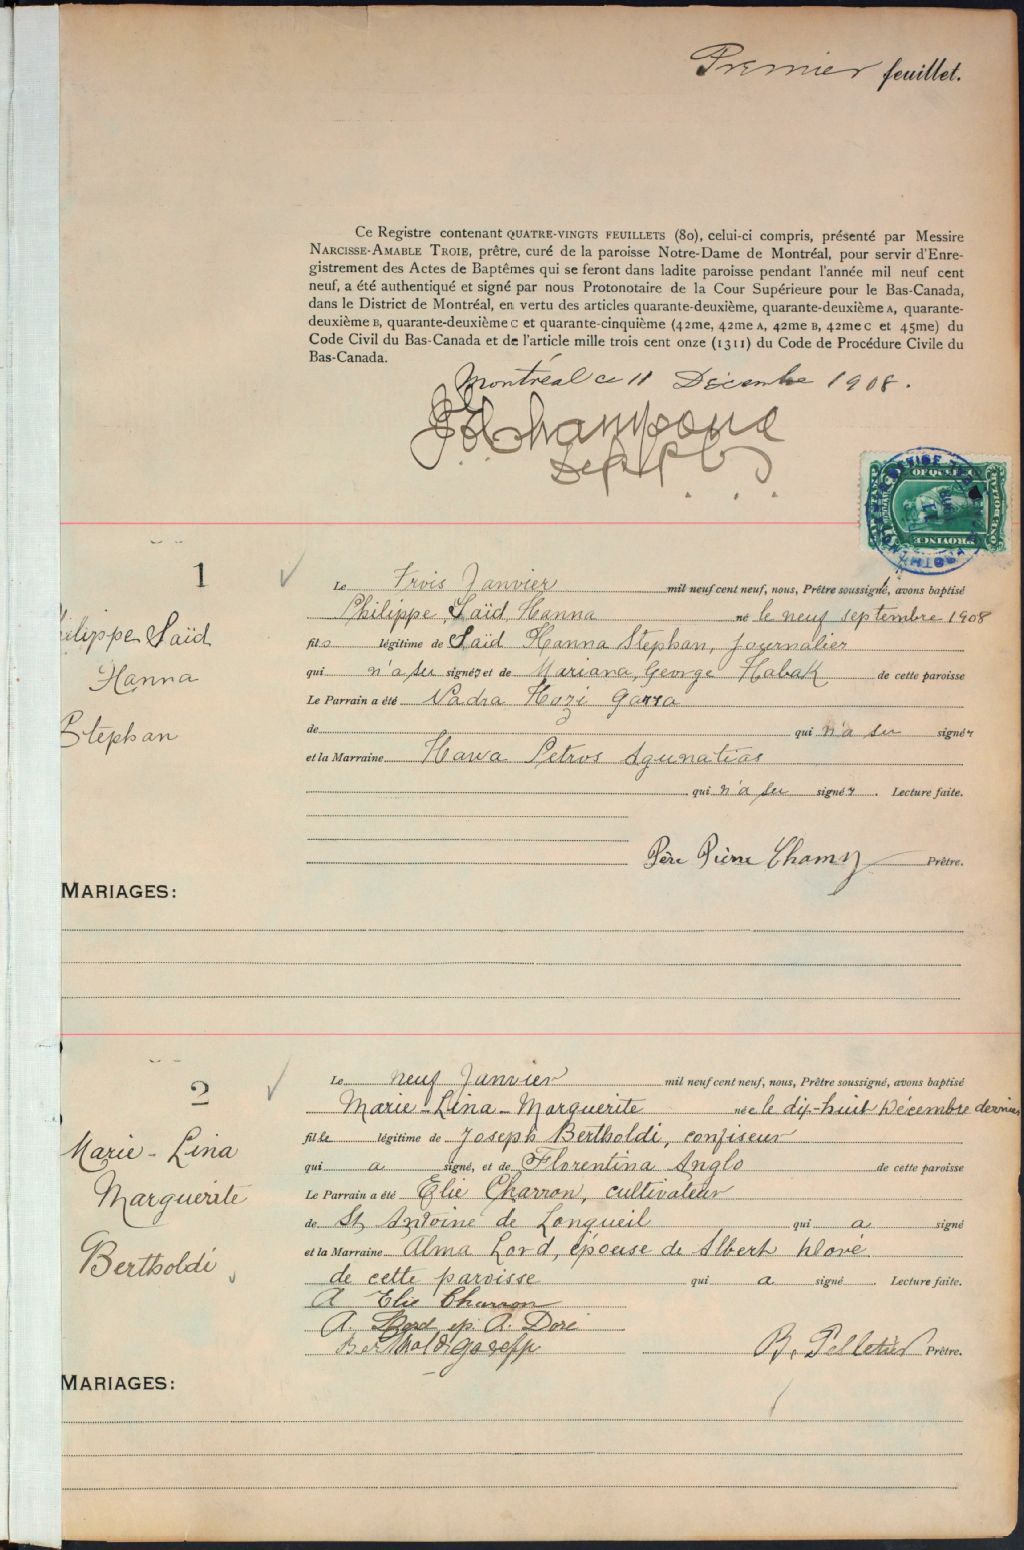 Premier feuillet.
Ce Registre contenant QUATRE-VINGTS FEUILLETS (80), celui-ci compris, présenté par Messire
NARCISSE-AMABLE TROIE, prêtre, curé de la paroisse Notre-Dame de Montréal, pour servir d'Enre-
gistrement des Actes de Baptêmes qui se feront dans ladite paroisse pendant l'année mil neuf cent
neuf, a été authentiqué et signé par nous Protonotaire de la Cour Supérieure pour le Bas-Canada,
dans le District de Montréal, en vertu des articles quarante-deuxième, quarante-deuxième A, quarante-
deuxième B, quarante-deuxième C et quarante-cinquième (42me, 42me A, 42me B, 42me C et 45me) du
Code Civil du Bas-Canada et de l'article mille trois cent onze (1311) du Code de Procédure Civile du
Bas-Canada.
Montréal ce 11 Décembre 1908.
OF QUEBEC
PROVINCE
ONE DOLLAR
1
Le Trois Janvier mil neuf cent neuf, nous, Prêtre soussigné, avons baptisé
Philippe Saïd Hanna né le neuf septembre 1908
fils légitime de Saïd Hanna Stephan, journalier
qui n'a su signer et de Mariana George Habak de cette paroisse
Le Parrain a été Nadra Hozi Garra
de qui n'a su signer
et la Marraine Hawa Petros Agunatias
qui n'a su signer. Lecture faite.
Père Pierre Chamy Prêtre.
ilippe Saïd
Hanna
Stephan
MARIAGES:
2
Le neuf Janvier mil neuf cent neuf, nous, Prêtre soussigné, avons baptisé
Marie-Lina-Marguerite née le dix-huit Décembre dernier
fille légitime de Joseph Bertholdi, confiseur
qui a signé, et de Florentina Anglo de cette paroisse
Le Parrain a été Elie Charron, cultivateur
de St Antoine de Longueil qui a signé
et la Marraine Alma Lord, épouse de Albert Doré
de cette paroisse qui a signé. Lecture faite.
Elie Charron
A. Lord ep. A. Doré
Bertholdi Goseff
B. Pelletier Prêtre.
Marie-Lina
Marguerite
Bertholdi
MARIAGES: